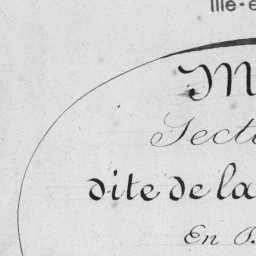 Ille-e
M
Secti
dite de la
En B